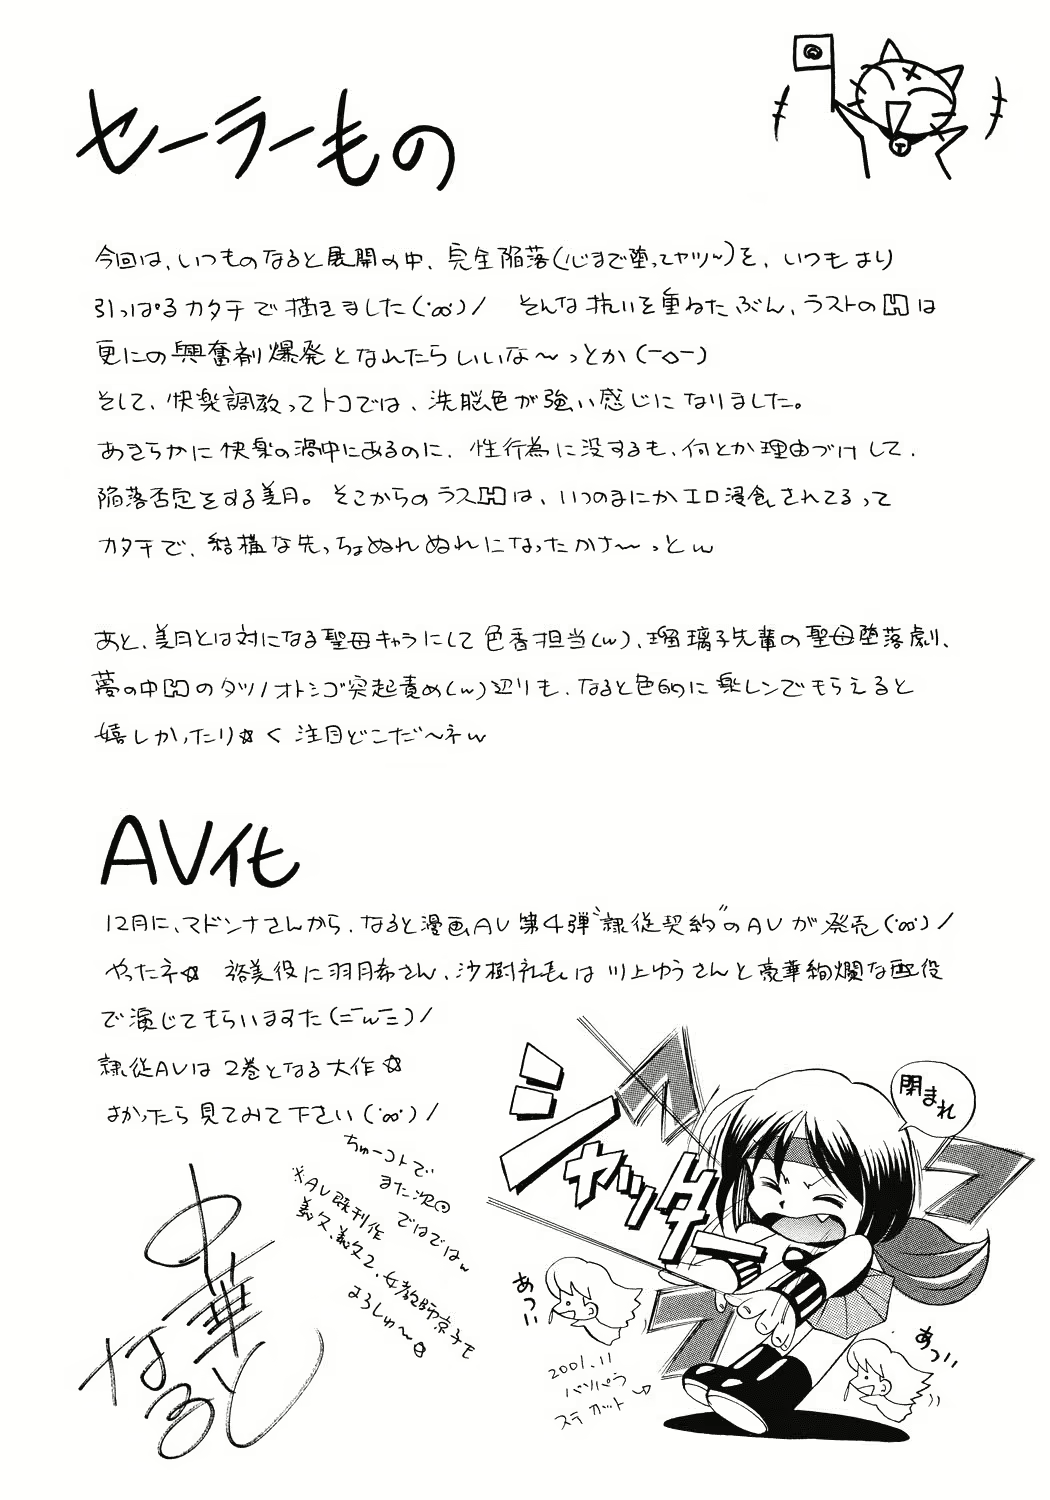 セーラーもの
今回は、いつものなると展開の中、完全陥落(心まで堕ってヤツ~)を、いつもより
引っぱるカタチで描きました(・ω・)/ そんな抗いを重ねたぶん、ラストのHは
更にの興奮剤爆発となれたらいいな〜っとか(ー◇ー)
そして、快楽調教ってトコでは、洗脳色が強い感じになりました。
あきらかに快楽の渦中にあるのに、性行為に没するも、何とか理由づけして、
陥落否定をする美月。そこからのラスHは、いつのまにかエロ浸食されてるって
カタチで、結構な先っちょぬれぬれになったかさ〜っとw
あと、美月とは対になる聖母キャラにして色香担当(w)、瑠璃子先輩の聖母堕落劇、
夢の中Hのタツノオトシゴ突起責め(w)辺りも、なると色的に楽しんでもらえると
嬉しかったり☆く注目どこだ〜ネw
AV化
12月に、マドンナさんから、なると漫画AV第4弾“隷従契約”のAVが発売(・ω・)/
やったネ☆ 裕美役に羽月希さん、沙樹礼
は川上ゆうさんと豪華絢爛な配役
で演じてもらいますた(=ーwー=)/
隷従AVは2巻となる大作☆
よかったら見てみて下さい(・ω・)/
ちゅーコトで
また次回
ではではw
※AV既刊作
義父、義父2、女教師京子モ
よろしゅ〜☆
中華
なると
シャッター
ニ
閉まれ
あっ
あっ
2001.11
バンパラ
ステカット